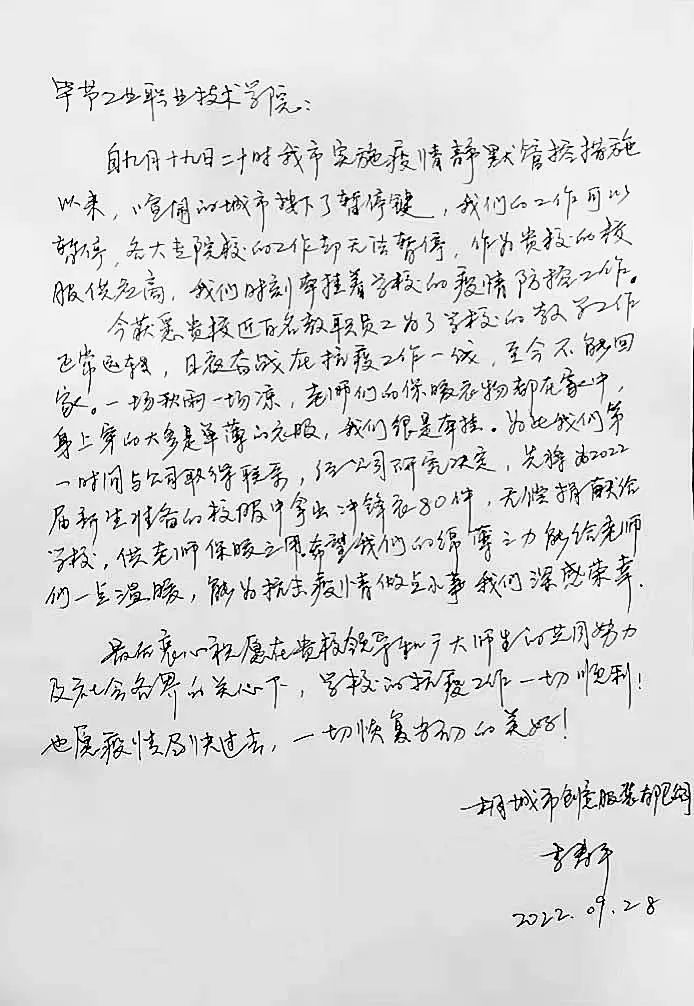 毕节工业职业技术学院：
自九月十九日二十时我市实施疫情静默管控措施
以来，喧闹的城市按下了暂停键，我们的工作可以
暂停，各大专院校的工作却无法暂停，作为贵校的校
服供应商，我们时刻牵挂着学校的疫情防控工作。
今获悉贵校近百名教职员工为了学校的教学工作
正常运转，日夜奋战在抗疫工作一线，至今不能回
家。一场秋雨一场凉，老师们的保暖衣物都在家中，
身上穿的大多是单薄的衣服，我们很是牵挂。为此我们第
一时间与公司取得联系，经公司研究决定，先将为2022
届新生准备的校服中拿出冲锋衣80件，无偿捐献给
学校，供老师保暖之用。希望我们的绵薄之力能给老师
们一点温暖，能为抗击疫情做点小事我们深感荣幸.
最后衷心祝愿在贵校领导和广大师生的共同努力
及社会各界的关心下，学校的抗疫工作一切顺利！
也愿疫情尽快过去，一切恢复如初的美好！
城市创意服装有限公司
2022.09.28